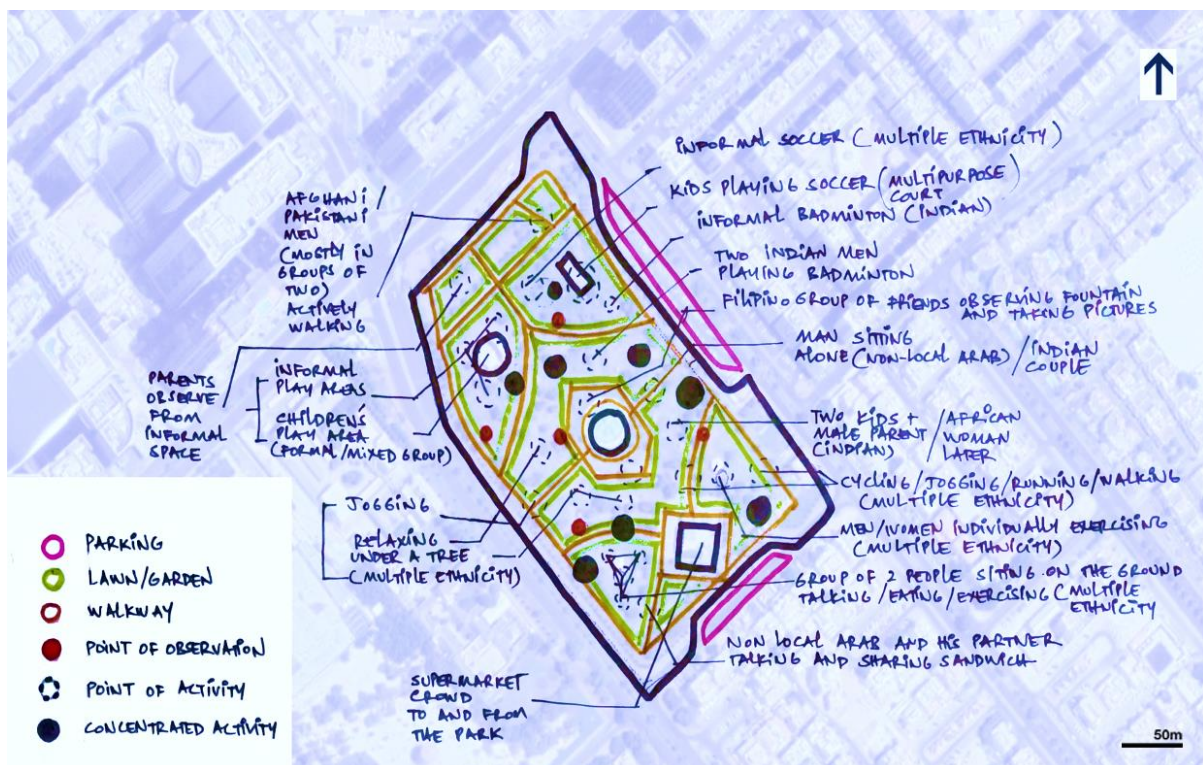 INFORMAL SOCCER (MULTIPLE ETHNICITY)
KIDS PLAYING SOCCER (MULTIPURPOSE
COURT
INFORMAL BADMINTON (INDIAN)
TWO INDIAN MEN
PLAYING BADMINTON
FILIPINO GROUP OF FRIENDS OBSERVING FOUNTAIN
AND TAKING PICTURES
MAN SITTING
ALONE (NON-LOCAL ARAB) / INDIAN
COUPLE
TWO KIDS + / AFRICAN
MALE PARENT WOMAN
(INDIAN) LATER
CYCLING / JOGGING / RUNNING / WALKING
(MULTIPLE ETHNICITY)
MEN/WOMEN INDIVIDUALLY EXERCISING
(MULTIPLE ETHNICITY)
GROUP OF 2 PEOPLE SITING ON THE GROUND
TALKING / EATING / EXERCISING (MULTIPLE
ETHNICITY
NON LOCAL ARAB AND HIS PARTNER
TALKING AND SHARING SANDWICH
AFGHANI /
PAKISTANI
MEN
(MOSTLY IN
GROUPS OF
TWO)
ACTIVELY
WALKING
PARENTS
OBSERVE
FROM
INFORMAL
SPACE
INFORMAL
PLAY AREAS
CHILDREN'S
PLAY AREA
(FORMAL/MIXED GROUP)
JOGGING
RELAXING
UNDER A TREE
(MULTIPLE ETHNICITY)
SUPERMARKET
CROWD
TO AND FROM
THE PARK
PARKING
LAWN/GARDEN
WALKWAY
POINT OF OBSERVATION
POINT OF ACTIVITY
CONCENTRATED ACTIVITY
50m